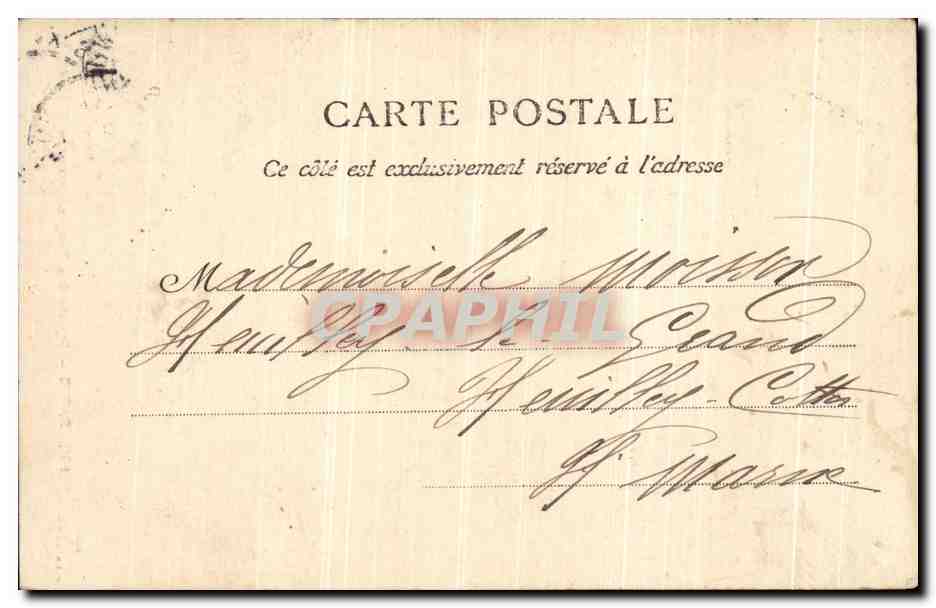 CARTE POSTALE
Ce côté est exclusivement réservé à l'adresse
Mademoiselle Moisson
CPAPHIL
Heuilley le Grand
Heuilley-Cotton
Hte Marne